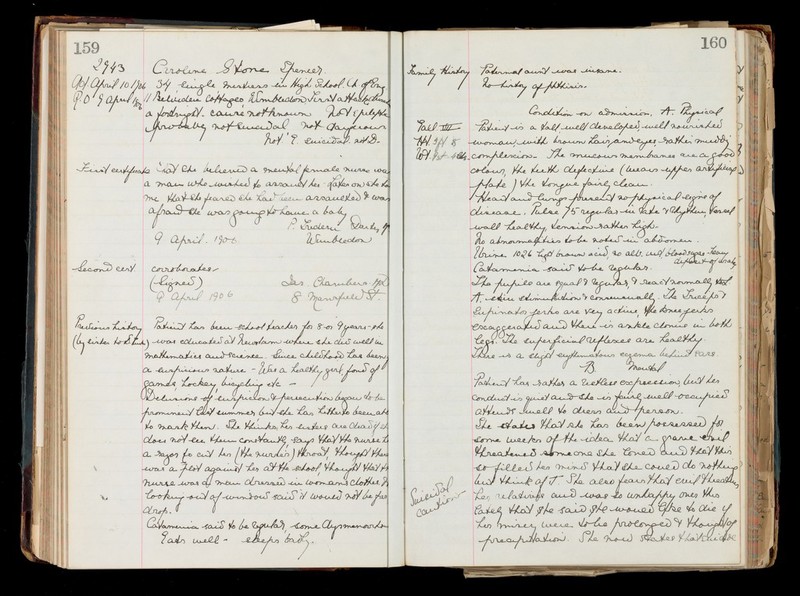 159
2943
Caroline Stones Spencer.
Adm April 10 1906 34 single mistress in High School Ch of Eng
R.O. 9 April 1906 11 Belvedere Cottages Wimbledon, First attack about
a fortnight. cause not known Not epileptic
probably not suicidal not dangerous
Not E. suicidal not D.
First certificate that she believed a mental female nurse was
a man who wished to assault her. Later on she told
me that she feared she had been assaulted & was
afraid she was going to have a baby
9 April. 1906 Wimbledon
Second cert corroborates
(Signed) Jas. Chambers MD
9 April 1906 8 Mansfield St.
Previous history Patient has been school teacher for 8 or 9 years - she
(by sister) was educated at Newnham where she did well in
mathematics and science. Since childhood has been of
a suspicious nature - Was a healthy girl fond of
games, hockey, bicycling etc -
Delusions of suspicion & persecution began to be
prominent last summer but she has hitherto been able
to mask them. She thinks her sisters are dead if she
does not see them constantly, says that the nurse had
a razor to cut her (the nurse's) throat, thought there
was a plot against her at the school, thought that the
nurse was a man dressed in womans clothes &
looking out of window said it would not be far
drop.
Catamenia said to be regular, some dysmenorrhoea
Eats well - sleeps badly.
160
Family History Paternal aunt was insane.
No history of phthisis.
Condition on admission. A. Physical
Patient is a tall well developed, well nourished
woman, with brown hair, and eyes, rather muddy
complexion. The mucous membranes are a good
colour, the teeth defective (wears upper artificial
plate) the tongue fairly clean.
Heart and lungs present no physical signs of
disease. Pulse 75 regular in rate & rhythm, vessel
wall healthy, tension rather high.
No abnormalities to be noted in abdomen.
Urine 1026 light brown acid, no alb. nor blood sugar heavy
deposit of urates
Catamenia said to be regular.
The pupils are equal & regular, & react normally to
A. skin stimulation & consensually. The triceps &
supinator jerks are very active, the knee jerks
exaggerated and there is ankle clonus in both
legs. The superficial reflexes are healthy.
There is a slight erythematous eczema behind ears.
B Mental
Patient has rather a listless expression, but her
conduct is quiet and she is fairly well occupied
attends well to dress and person.
She states that she has been possessed for
some weeks of the idea that a grave evil
threatened someone she loved and that this
so filled her mind that she could do nothing
but think of it. She also fears that evil threatens
her relatives and was so unhappy over this
Suicidal
caution
lately that she said she would like to die if
her misery were to be prolonged & thought of
precipitation. She now states that suicide